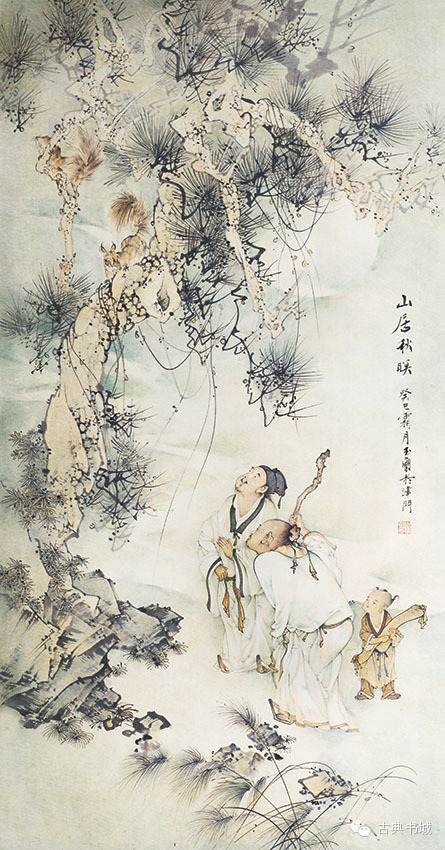 山居秋暝
癸巳霜月玉於津門
古典书城